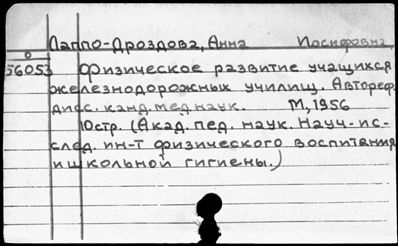 Лаппо-Дроздова, Анна Иосифовна.
56053 Физическое развитие учащихся
железнодорожных училищ. Автореф.
дисс. канд. мед наук. М, 1956
10стр. (Акад. пед. наук. Науч-ис-
след. ин-т физического воспитания
и школьной гигиены.)